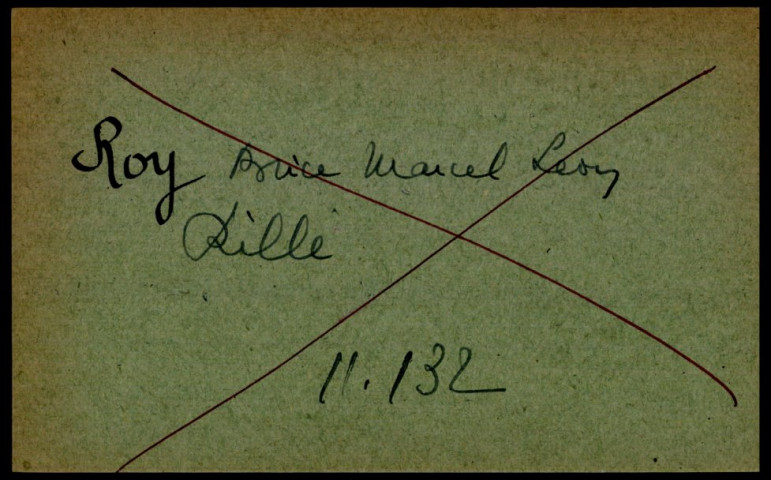 Roy Brice Marcel Leon
Lille
11.132